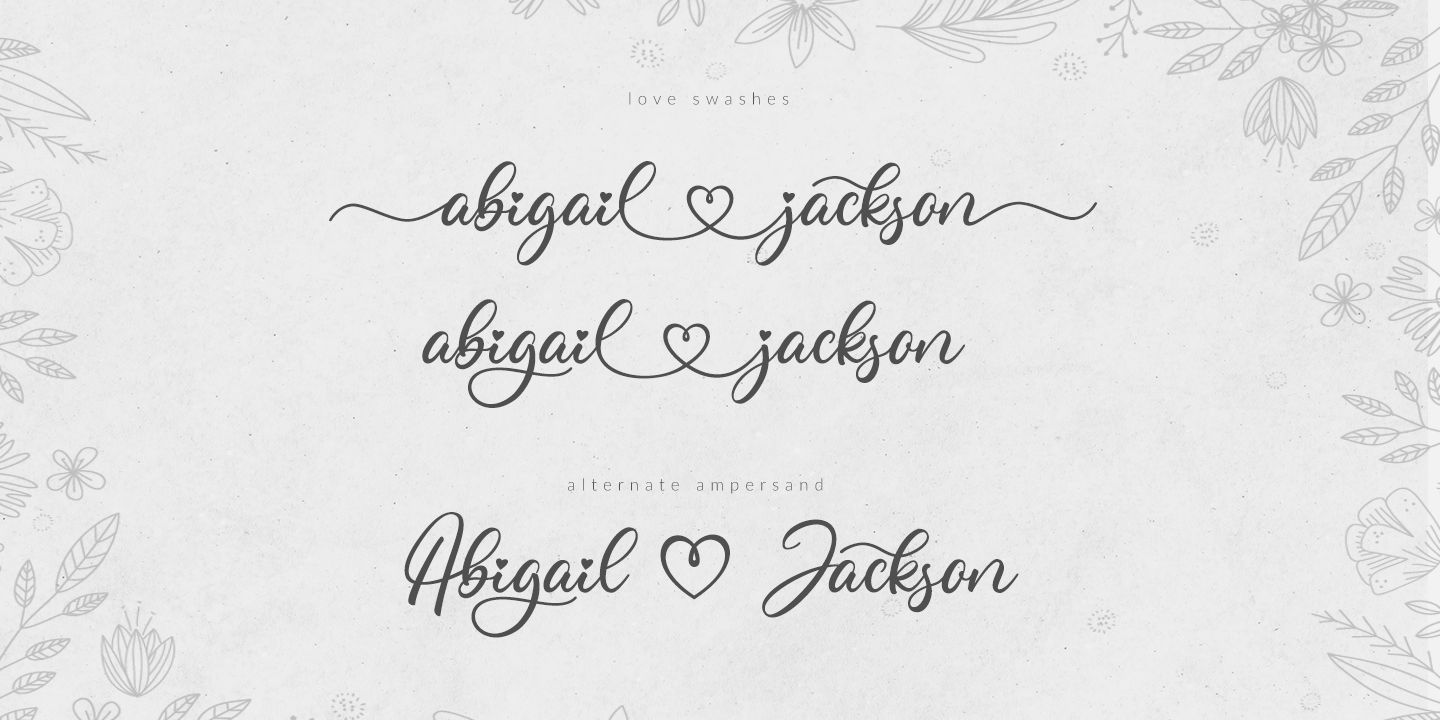 love swashes
abigail ♡ jackson
abigail ♡ jackson
alternate ampersand
Abigail ♡ Jackson